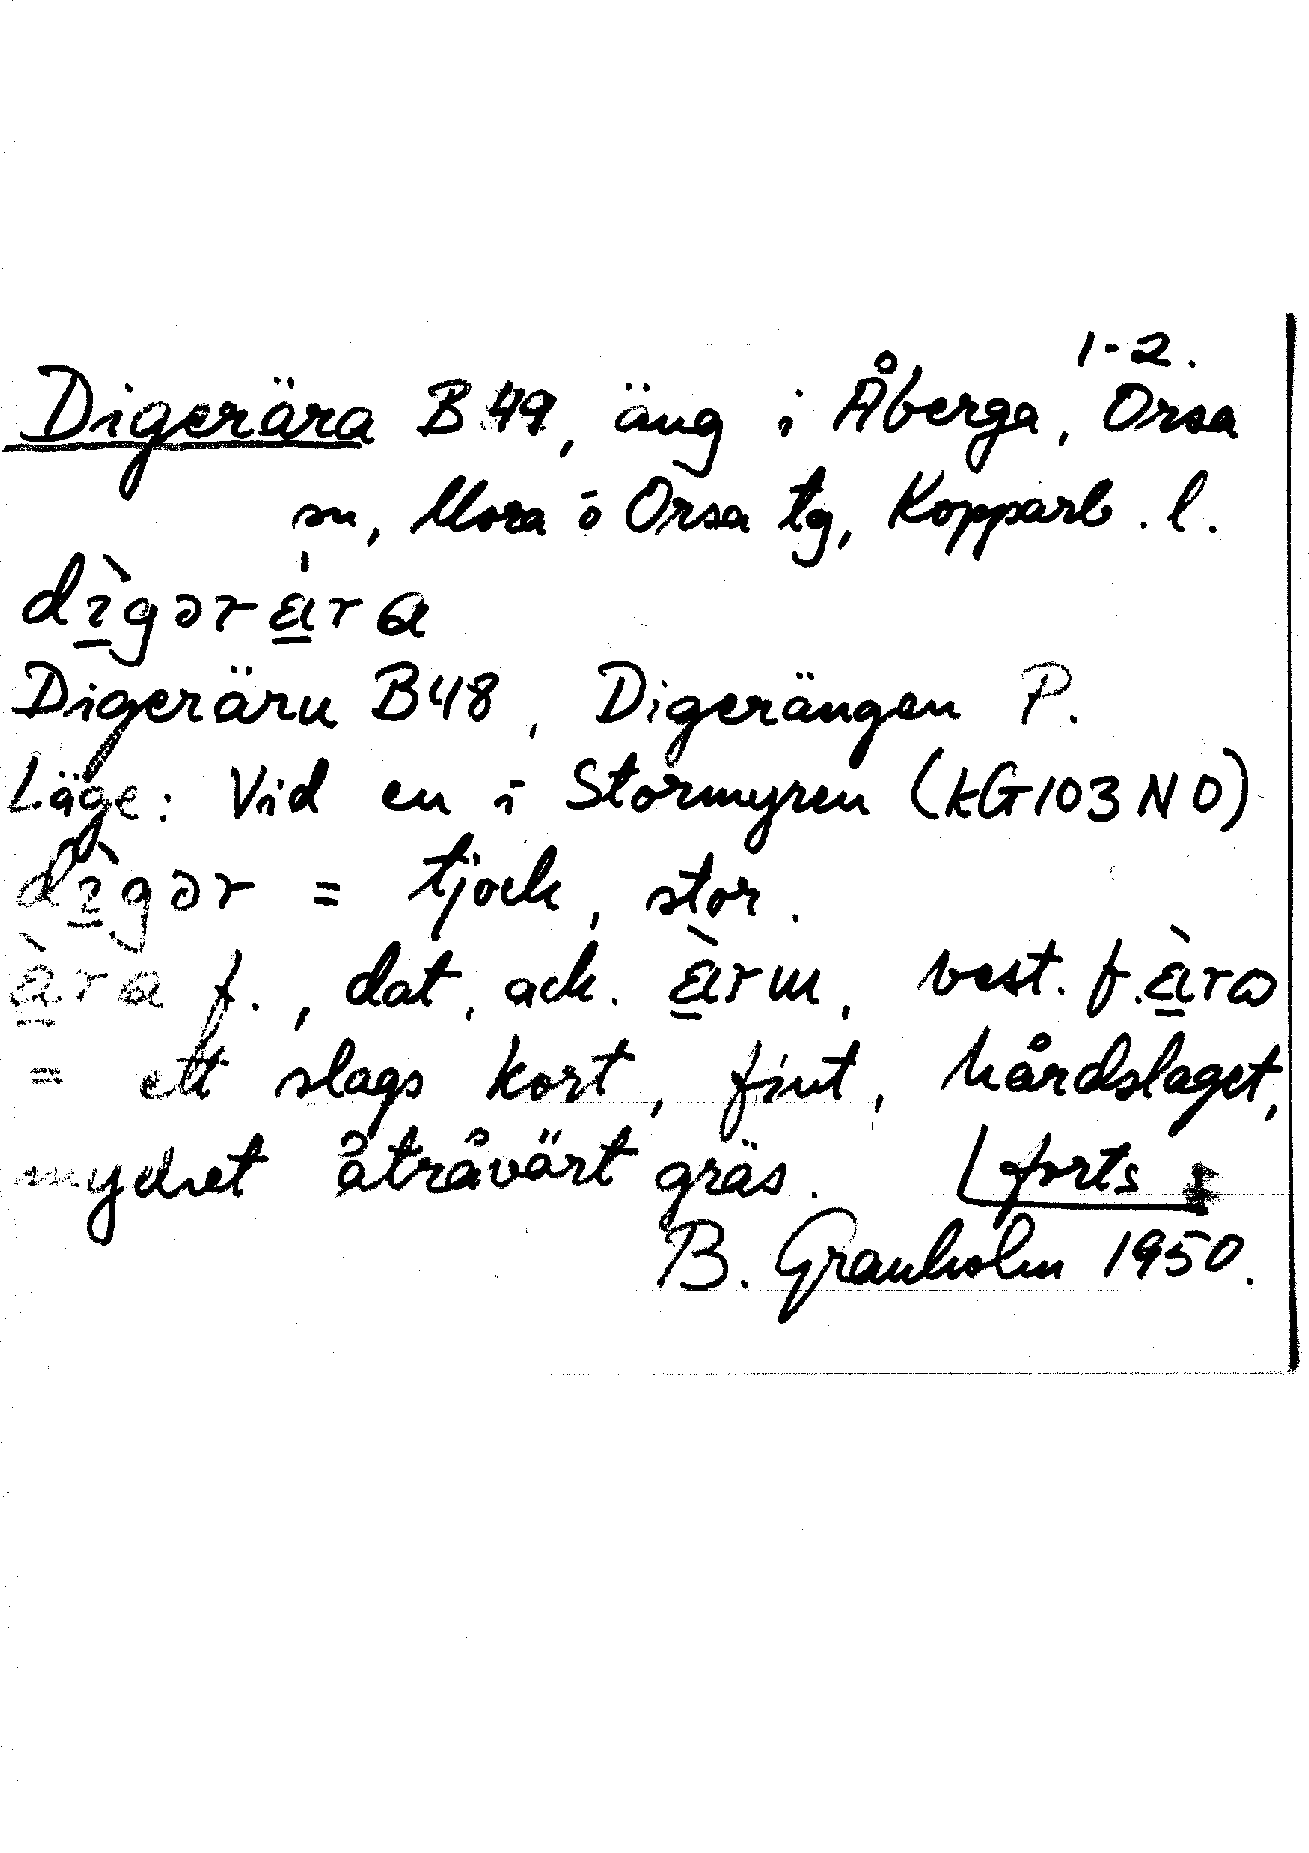 1-2.
Digerära B49, äng i Åberga, Orsa
sn, Mora o Orsa tg, Kopparb. l.
dı̀gərä́ra
Digeräru B48, Digerängen P.
Läge: Vid en i Stormyren (kG103NO)
dı̀gər = tjock, stor.
ä̀ra f., dat, ack. ä̀rɯ, best. f. ä̀rɷ
= ett slags kort, fint, hårdslaget,
mycket åtråvärt gräs. forts
B. Granholm 1950.